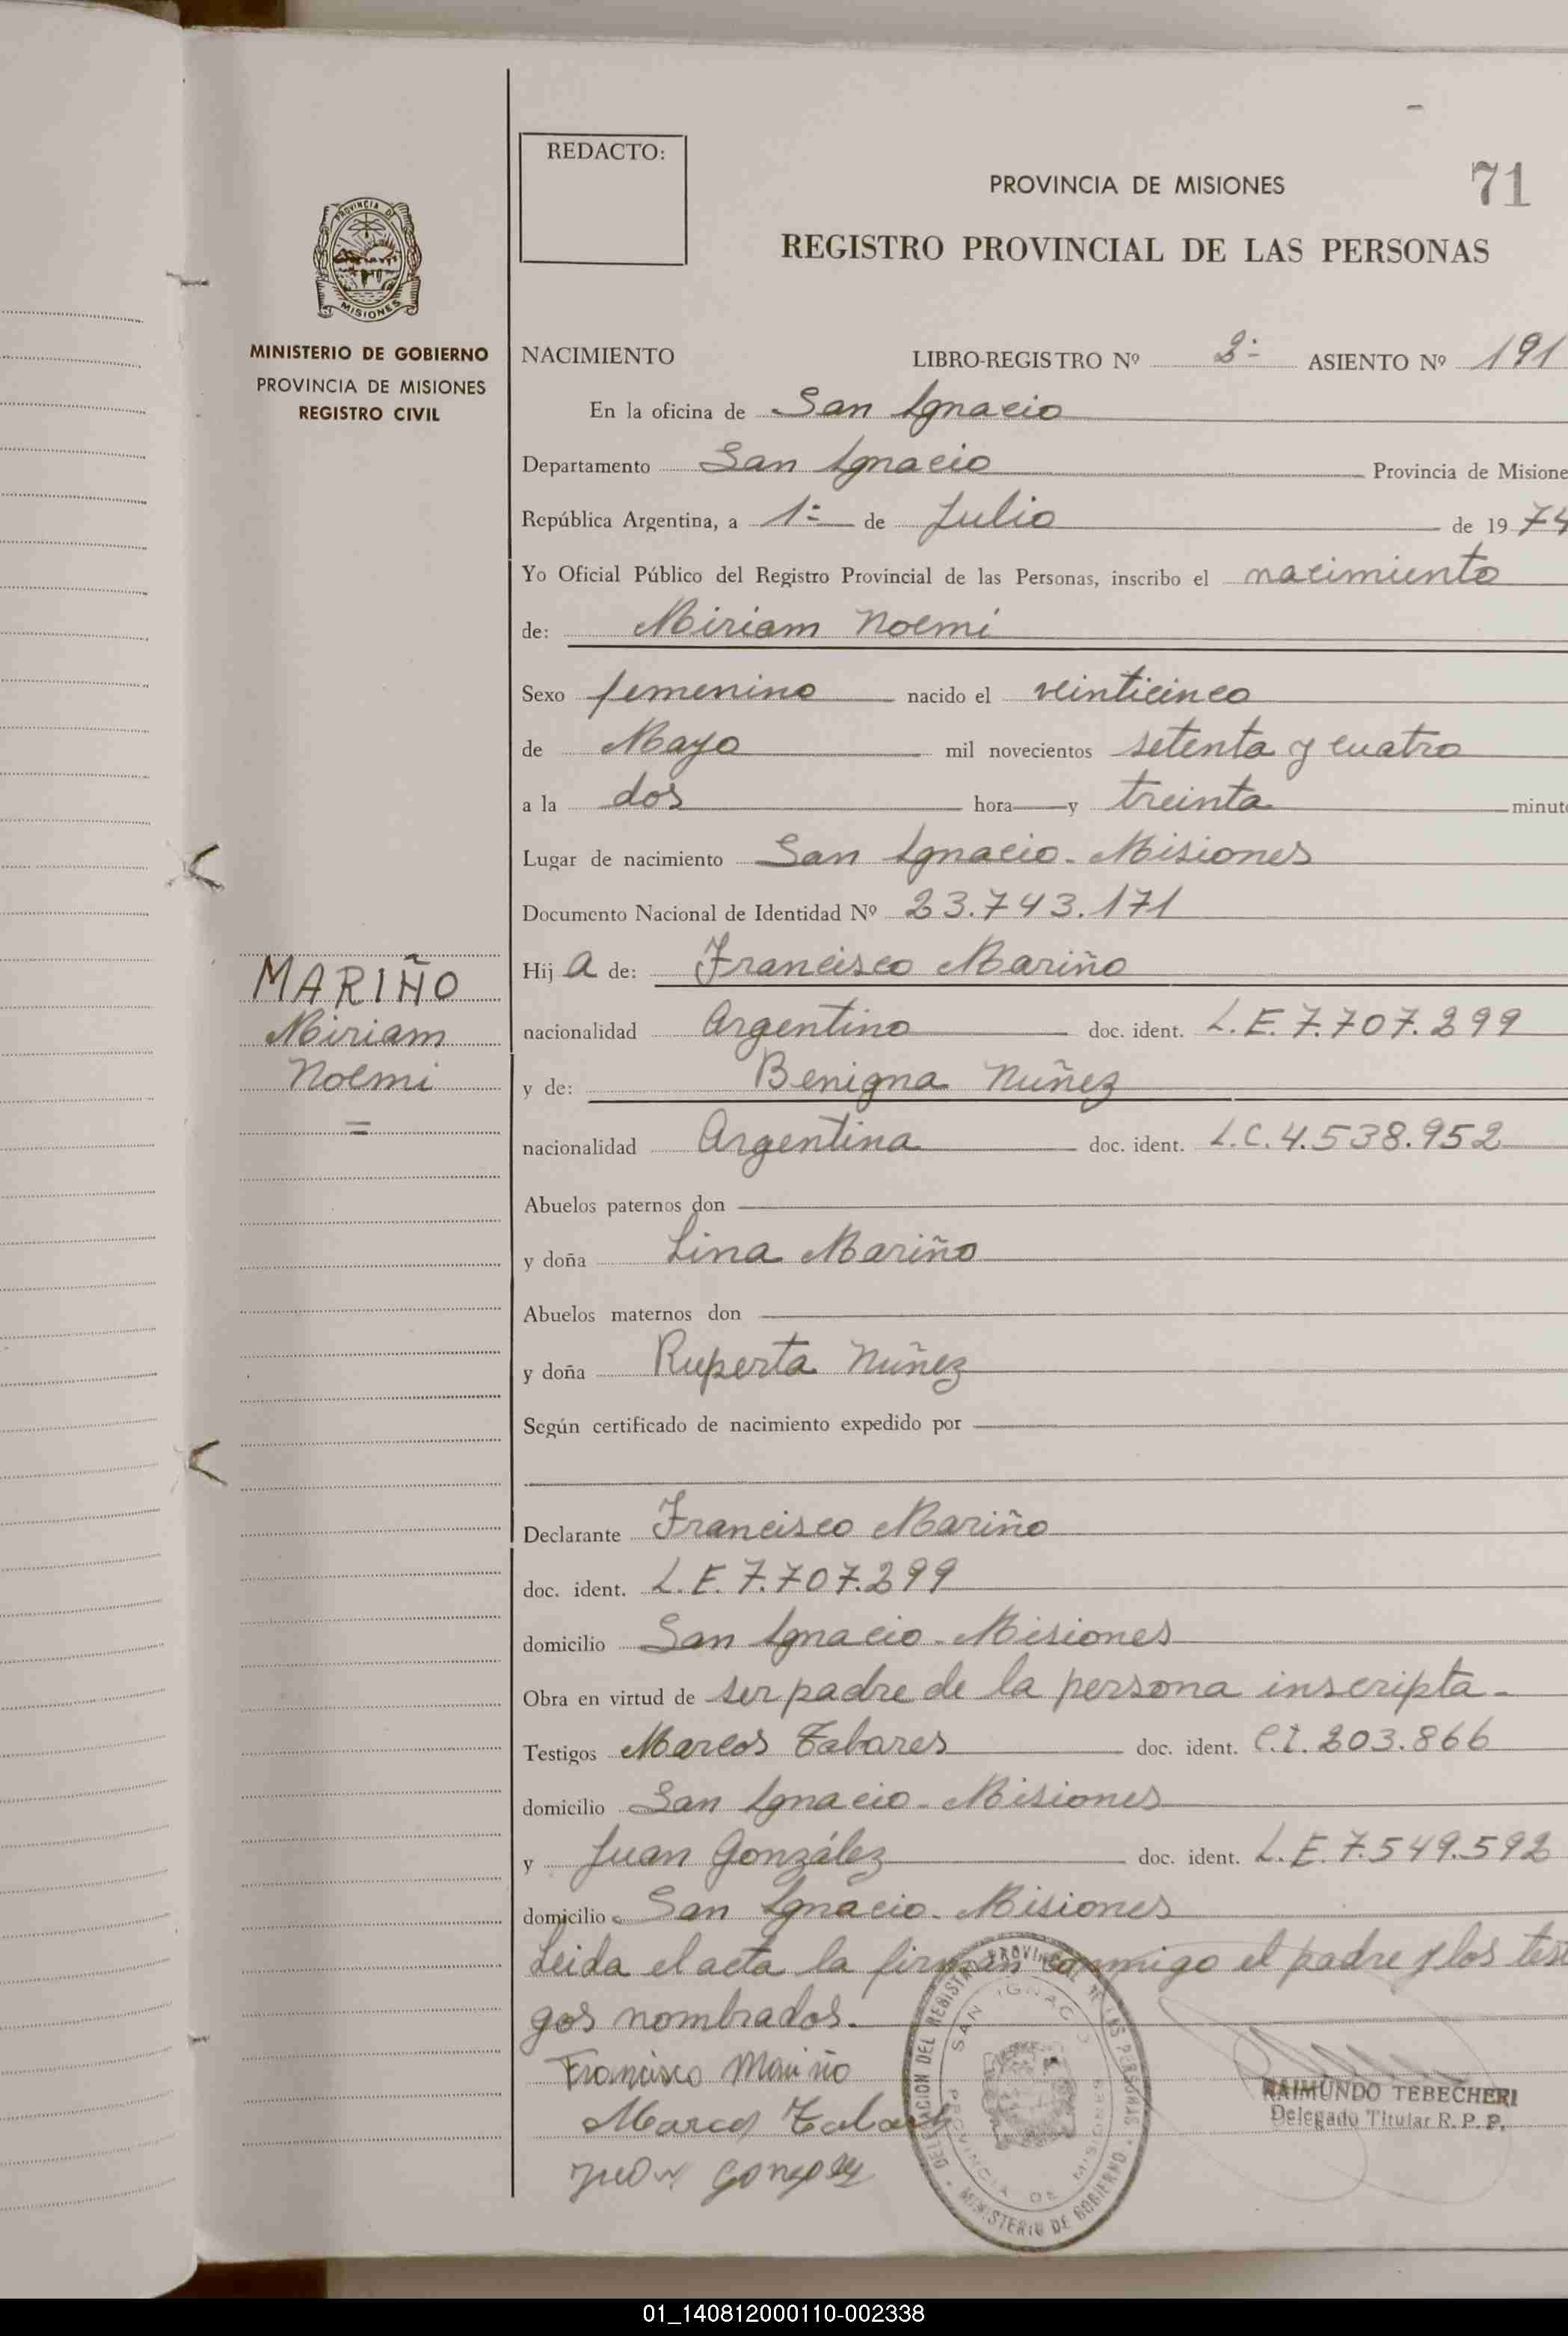 REDACTO:
PROVINCIA DE MISIONES
71
REGISTRO PROVINCIAL DE LAS PERSONAS
PROVINCIA DE
MISIONES
MINISTERIO DE GOBIERNO
PROVINCIA DE MISIONES
REGISTRO CIVIL
NACIMIENTO LIBRO-REGISTRO Nº 2º ASIENTO Nº 191
En la oficina de San Ignacio
Departamento San Ignacio Provincia de Misione
República Argentina, a 1º de Julio de 19 74
Yo Oficial Público del Registro Provincial de las Personas, inscribo el nacimiento
de: Miriam Noemí
Sexo femenino nacido el veinticinco
de Mayo mil novecientos setenta y cuatro
a la dos hora y treinta minut
Lugar de nacimiento San Ignacio - Misiones
Documento Nacional de Identidad Nº 23.743.171
Hij a de: Francisco Mariño
nacionalidad Argentino doc. ident. L.E. 7.707.299
y de: Benigna Nuñez
nacionalidad Argentina doc. ident. L.C. 4.538.952
MARIÑO
Miriam
Noemi
=
Abuelos paternos don
y doña Lina Mariño
Abuelos maternos don
y doña Ruperta Nuñez
Según certificado de nacimiento expedido por
Declarante Francisco Mariño
doc. ident. L.E. 7.707.299
domicilio San Ignacio - Misiones
Obra en virtud de ser padre de la persona inscripta.-
Testigos Marcos Tabares doc. ident. C.I. 203.866
domicilio San Ignacio - Misiones
y Juan González doc. ident. L.E. 7.549.592
domicilio San Ignacio - Misiones
Leida el acta la firman conmigo el padre y los testi
gos nombrados.-
Francisco Mariño
Marcos Tabares
Juan Gonzalez
DELEGACION DEL REGISTRO PROVINCIAL DE LAS PERSONAS
MINISTERIO DE GOBIERNO
SAN IGNACIO
PROVINCIA DE MISIONES
RAIMUNDO TEBECHERI
Delegado Titular R. P. P.
01_140812000110-002338